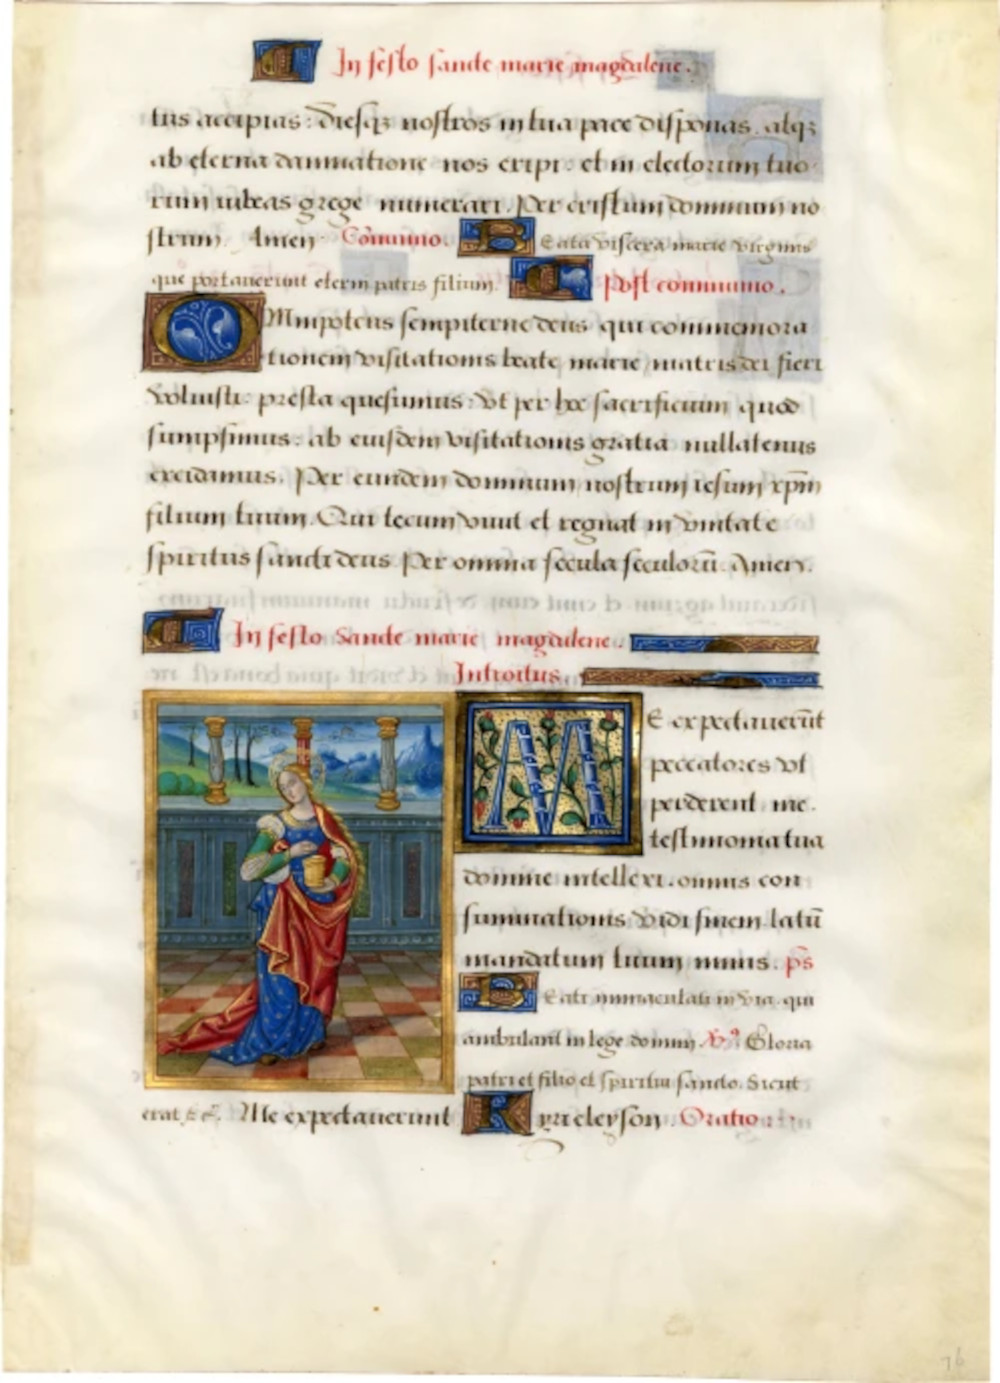 In festo sancte marie magdalene.
tus accipias: diesqz nostros in tua pace disponas. atqz
ab eterna damnatione nos eripi: et in electorum tuo
rum iubeas grege numerari. Per cristum dominum no
strum. Amen. Cōmunio. Beata viscera marie virginis
que portauerunt eterni patris filium. Post communio.
OMnipotens sempiterne deus qui commemora
tionem visitationis beate marie matris dei fieri
voluisti: presta quesumus: vt per hoc sacrificium quod
sumpsimus. ab eiusdem visitationis gratia nullatenus
excidamus. Per eundem dominum nostrum iesum xp̄m
filium tuum. Qui tecum viuit et regnat in vnitate
spiritus sancti deus Per omnia secula seculorū. Amen.
In festo Sancte marie magdalene.
Introitus.
ME expectauerūt
peccatores vt
perderent me.
testimonia tua
domine intellexi. omnis con
summationis vidi finem. latū
mandatum tuum nimis. p̄s
Beati immaculati in via. qui
ambulant in lege domini Gloria
patri et filio et spiritui sancto. Sicut
erat Me expectauerunt Kyrieleyson. Oratio
76